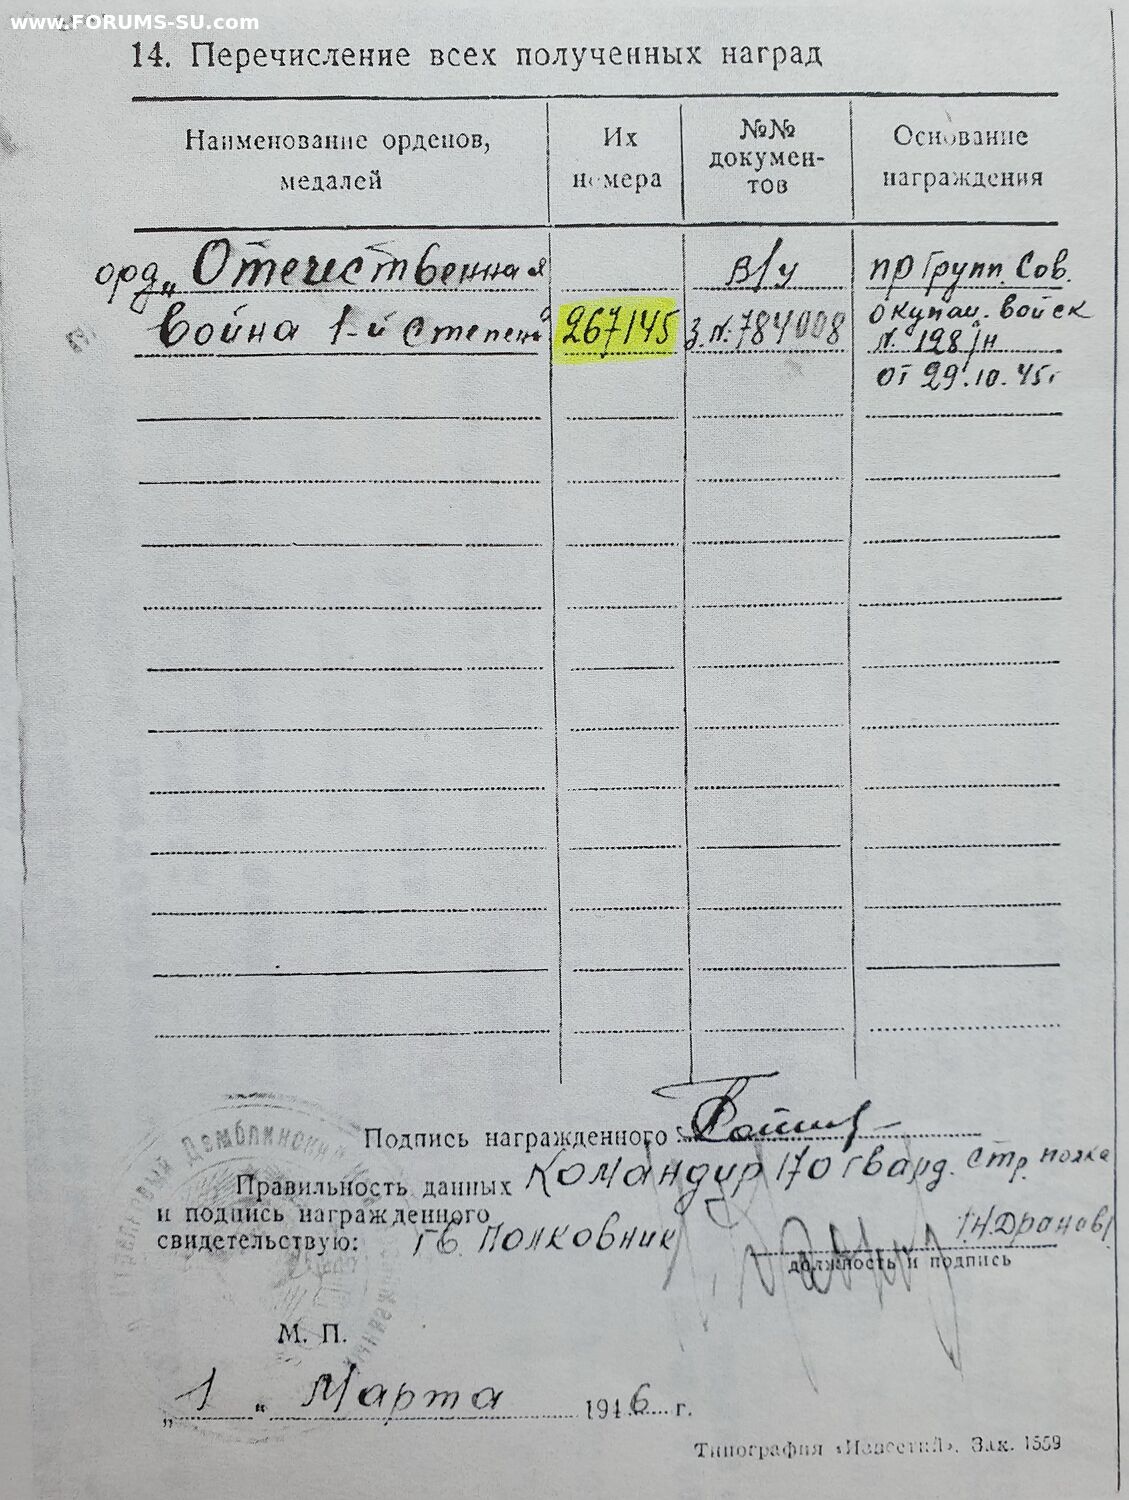 www.FORUMS-SU.com
14. Перечисление всех полученных наград
Наименование орденов, медалей
Их номера
№№ докумен-тов
Основание награждения
орд „Отечественная
Война 1-й Степени
267145
в/у
З.N.784008
пр Групп. Сов.
окупац. войск
N. 128/н
от 29.10.45г
Подпись награжденного:
Командир 170 гвард. Стр. полка
Правильность данных
и подпись награжденного
свидетельствую:
Гв. Полковник
должность и подпись
М. П.
„ 1 “ Марта 1946 г.
Типография «Известий». Зак. 1559